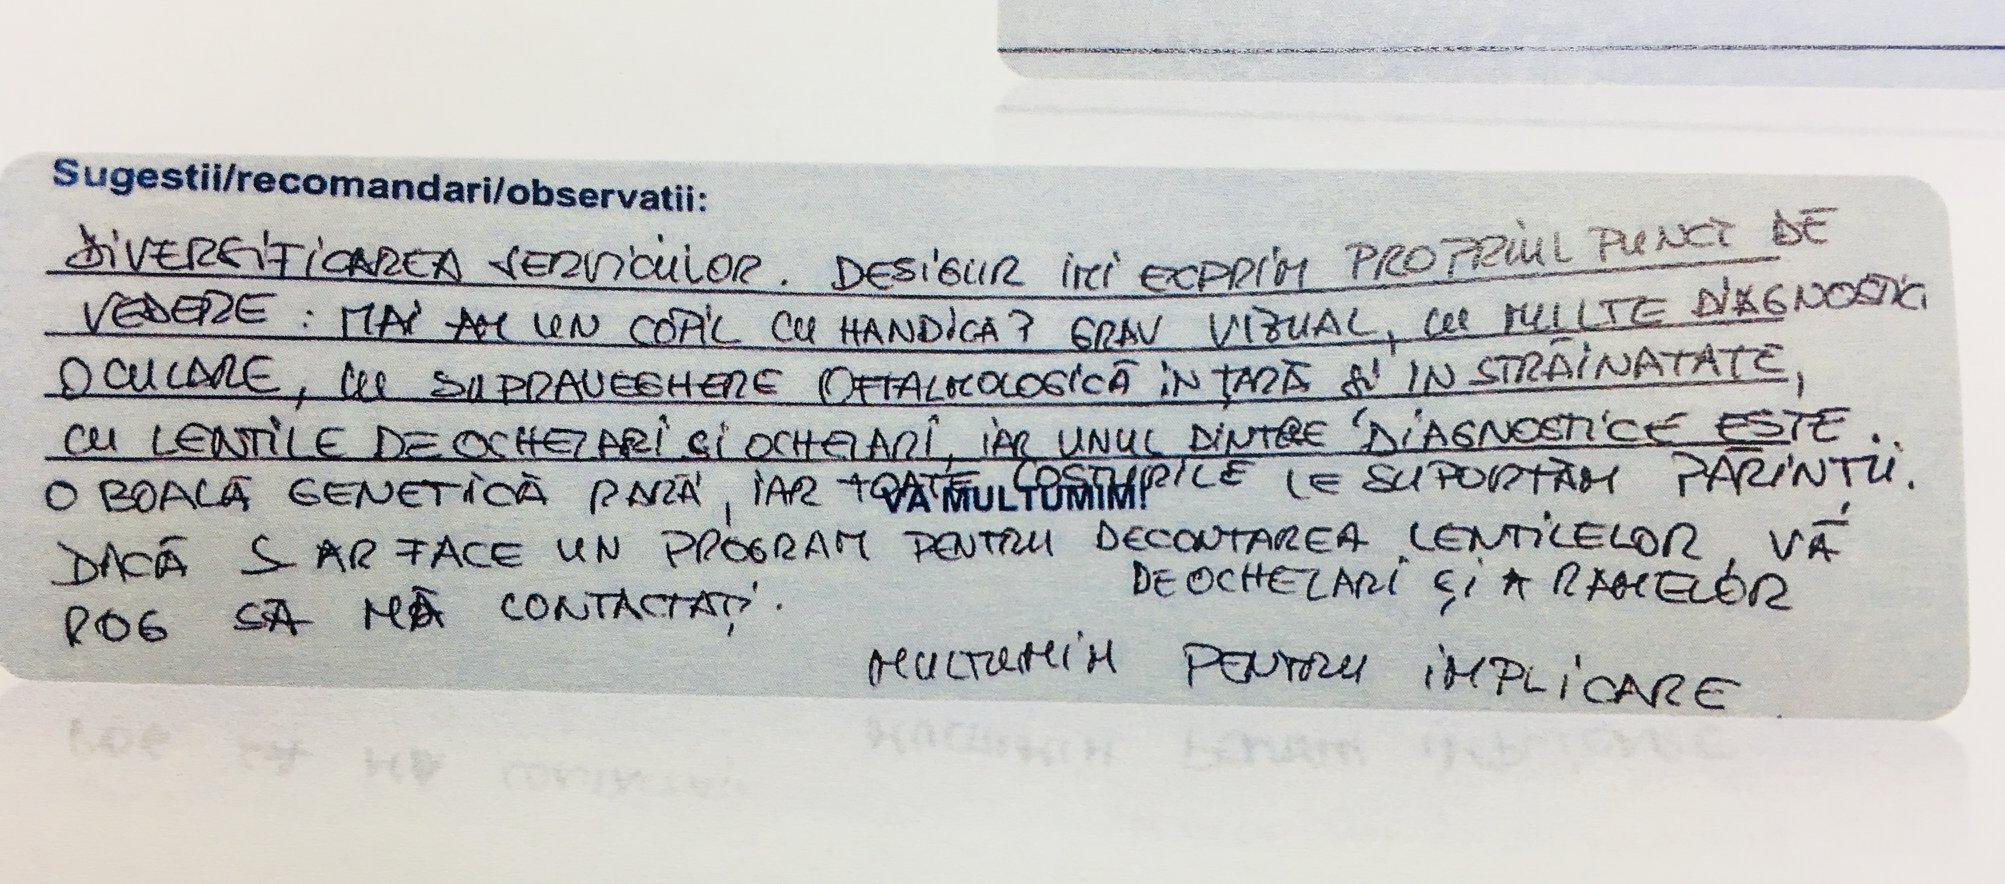 Sugestii/recomandari/observatii:
DIVERSIFICAREA SERVICIILOR. DESIGUR IMI EXPRIM PROPRIUL PUNCT DE
VEDERE : MAI AM UN COPIL CU HANDICAP GRAV VIZUAL, CU MULTE DIAGNOSTICI
OCULARE, CU SUPRAVEGHERE OFTALMOLOGICĂ IN ȚARĂ ȘI IN STRĂINATATE,
CU LENTILE DE OCHELARI ȘI OCHELARI, IAR UNUL DINTRE DIAGNOSTICE ESTE ..
O BOALĂ GENETICĂ RARĂ, IAR TOATE COSTURILE LE SUPORTĂM PĂRINȚII.
VA MULTUMIM!
DACĂ S AR FACE UN PROGRAM PENTRU DECONTAREA LENTILELOR, VĂ
DE OCHELARI ȘI A RAMELOR
ROG SĂ MĂ CONTACTAȚI.
MULTUMIM PENTRU IMPLICARE